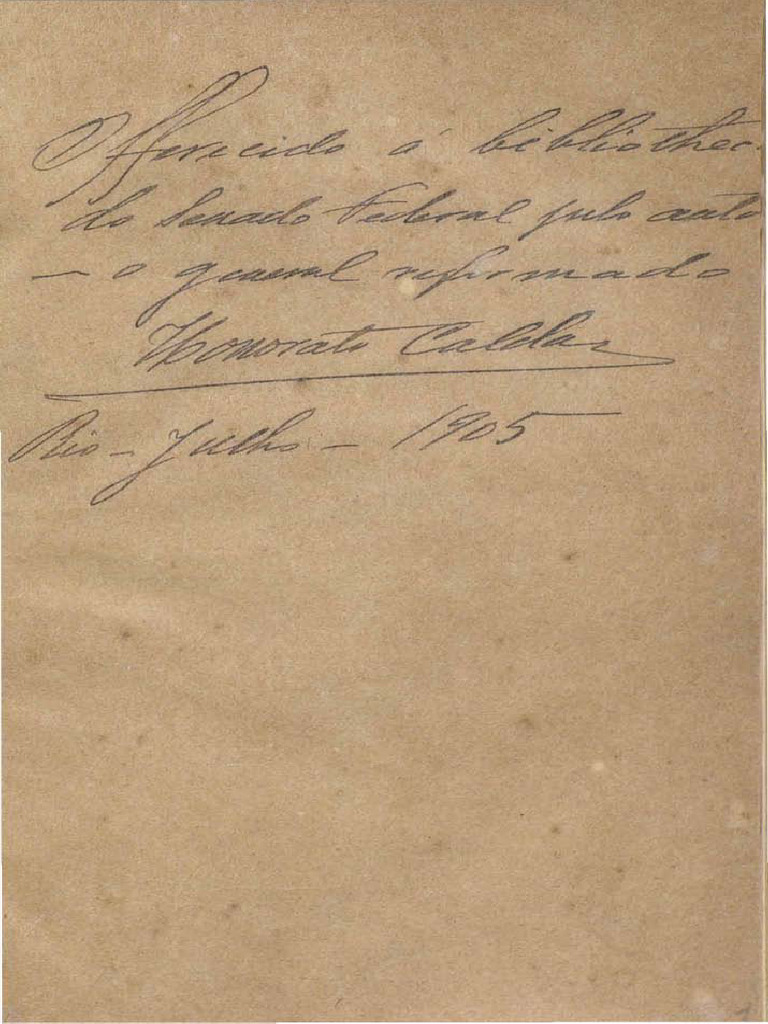 Offerecido á bibliothec
do Senado Federal pelo auto
— o general reformado
Honorato Caldas
Rio - Julho - 1905